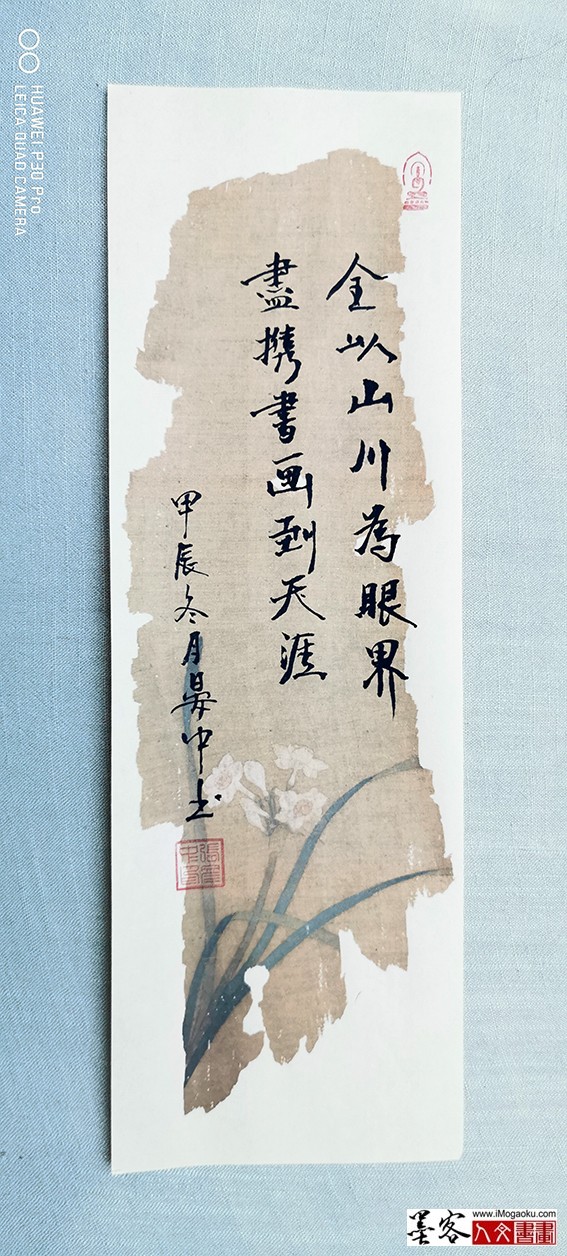 全以山川為眼界
盡攜書画到天涯
甲辰冬月晏中书
HUAWEI P30 Pro
LEICA QUAD CAMERA
www.iMogaoku.com
墨客
人文書畫